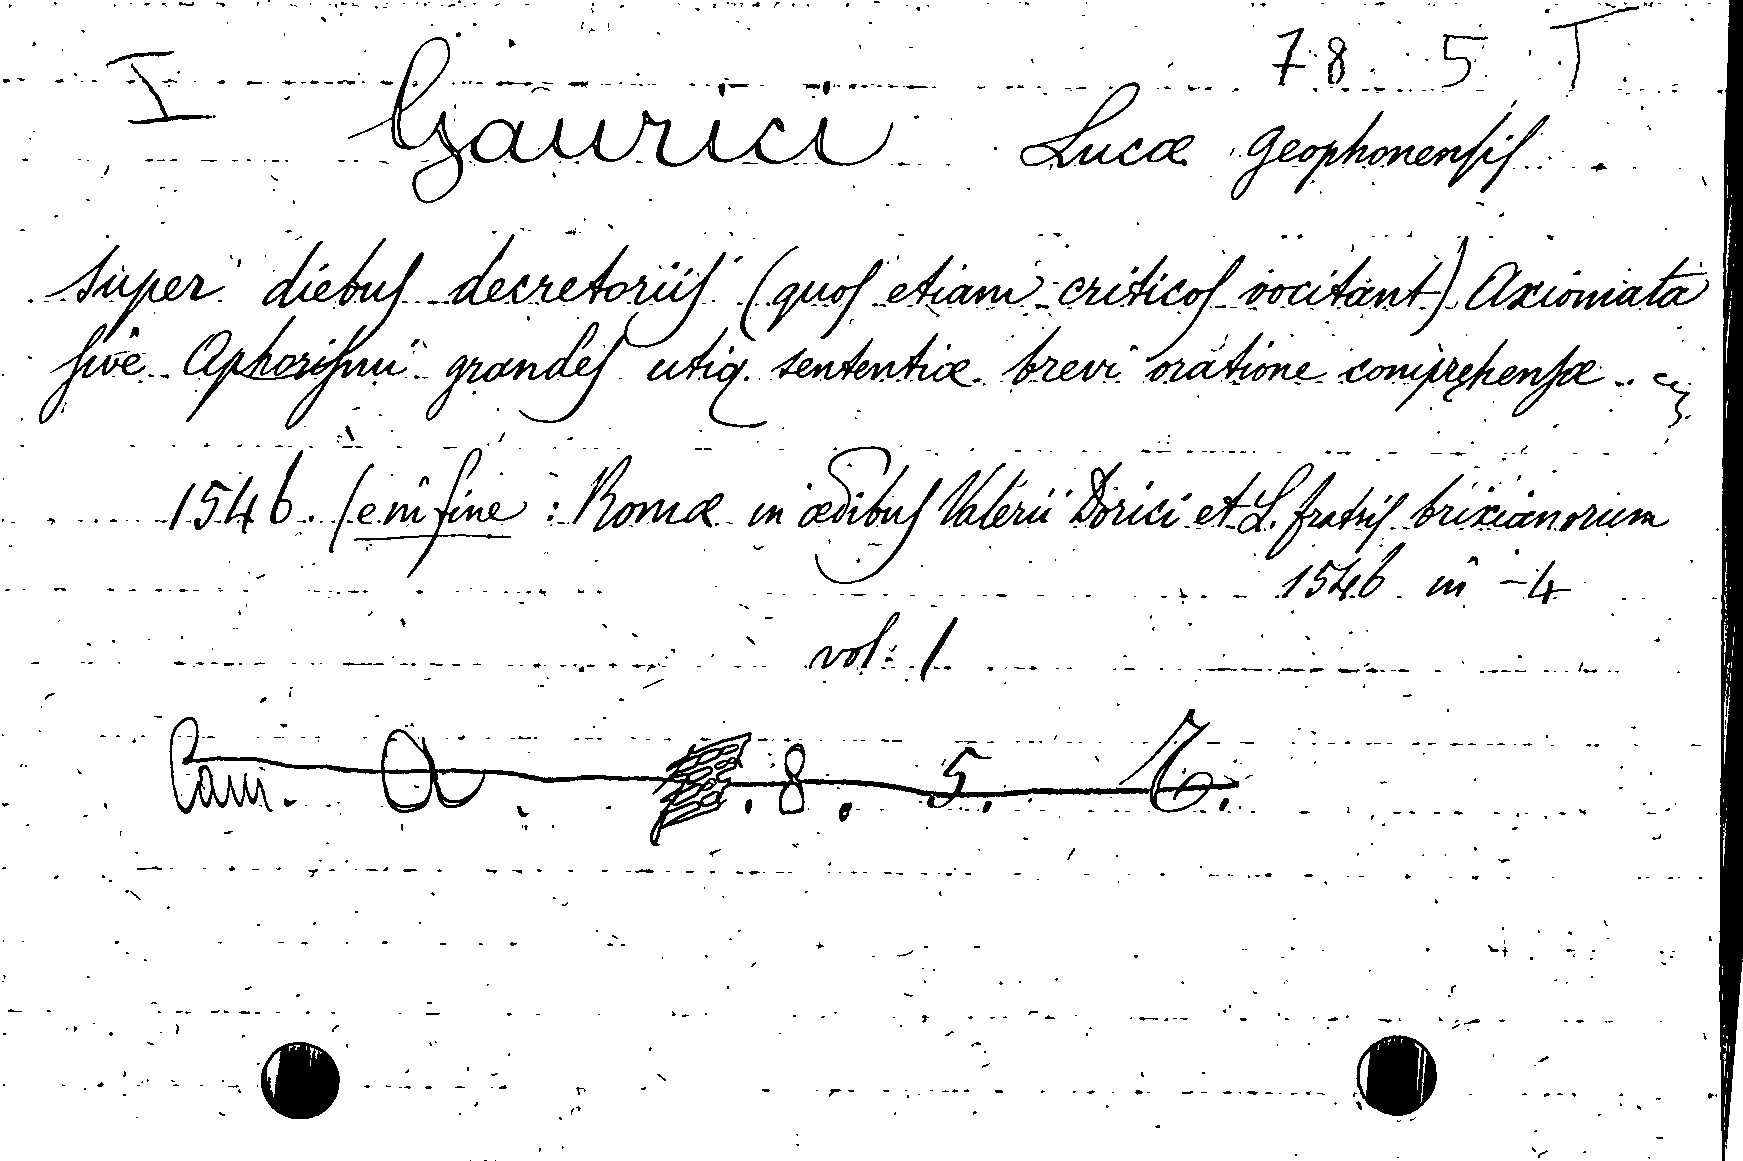 I 78. 5 T
Gaurici Lucæ Geophonensis
super diebus decretoriis (quos etiam criticos vocitant) Axiomata
sive Aphorismi grandes utiq. sententiæ brevi oratione comprehensæ.
1546. (e in fine : Romæ in ædibus Valerii Dorici et L. fratris brixianorum
1546 in -4
vol: 1
Cam. A. 8. 5.